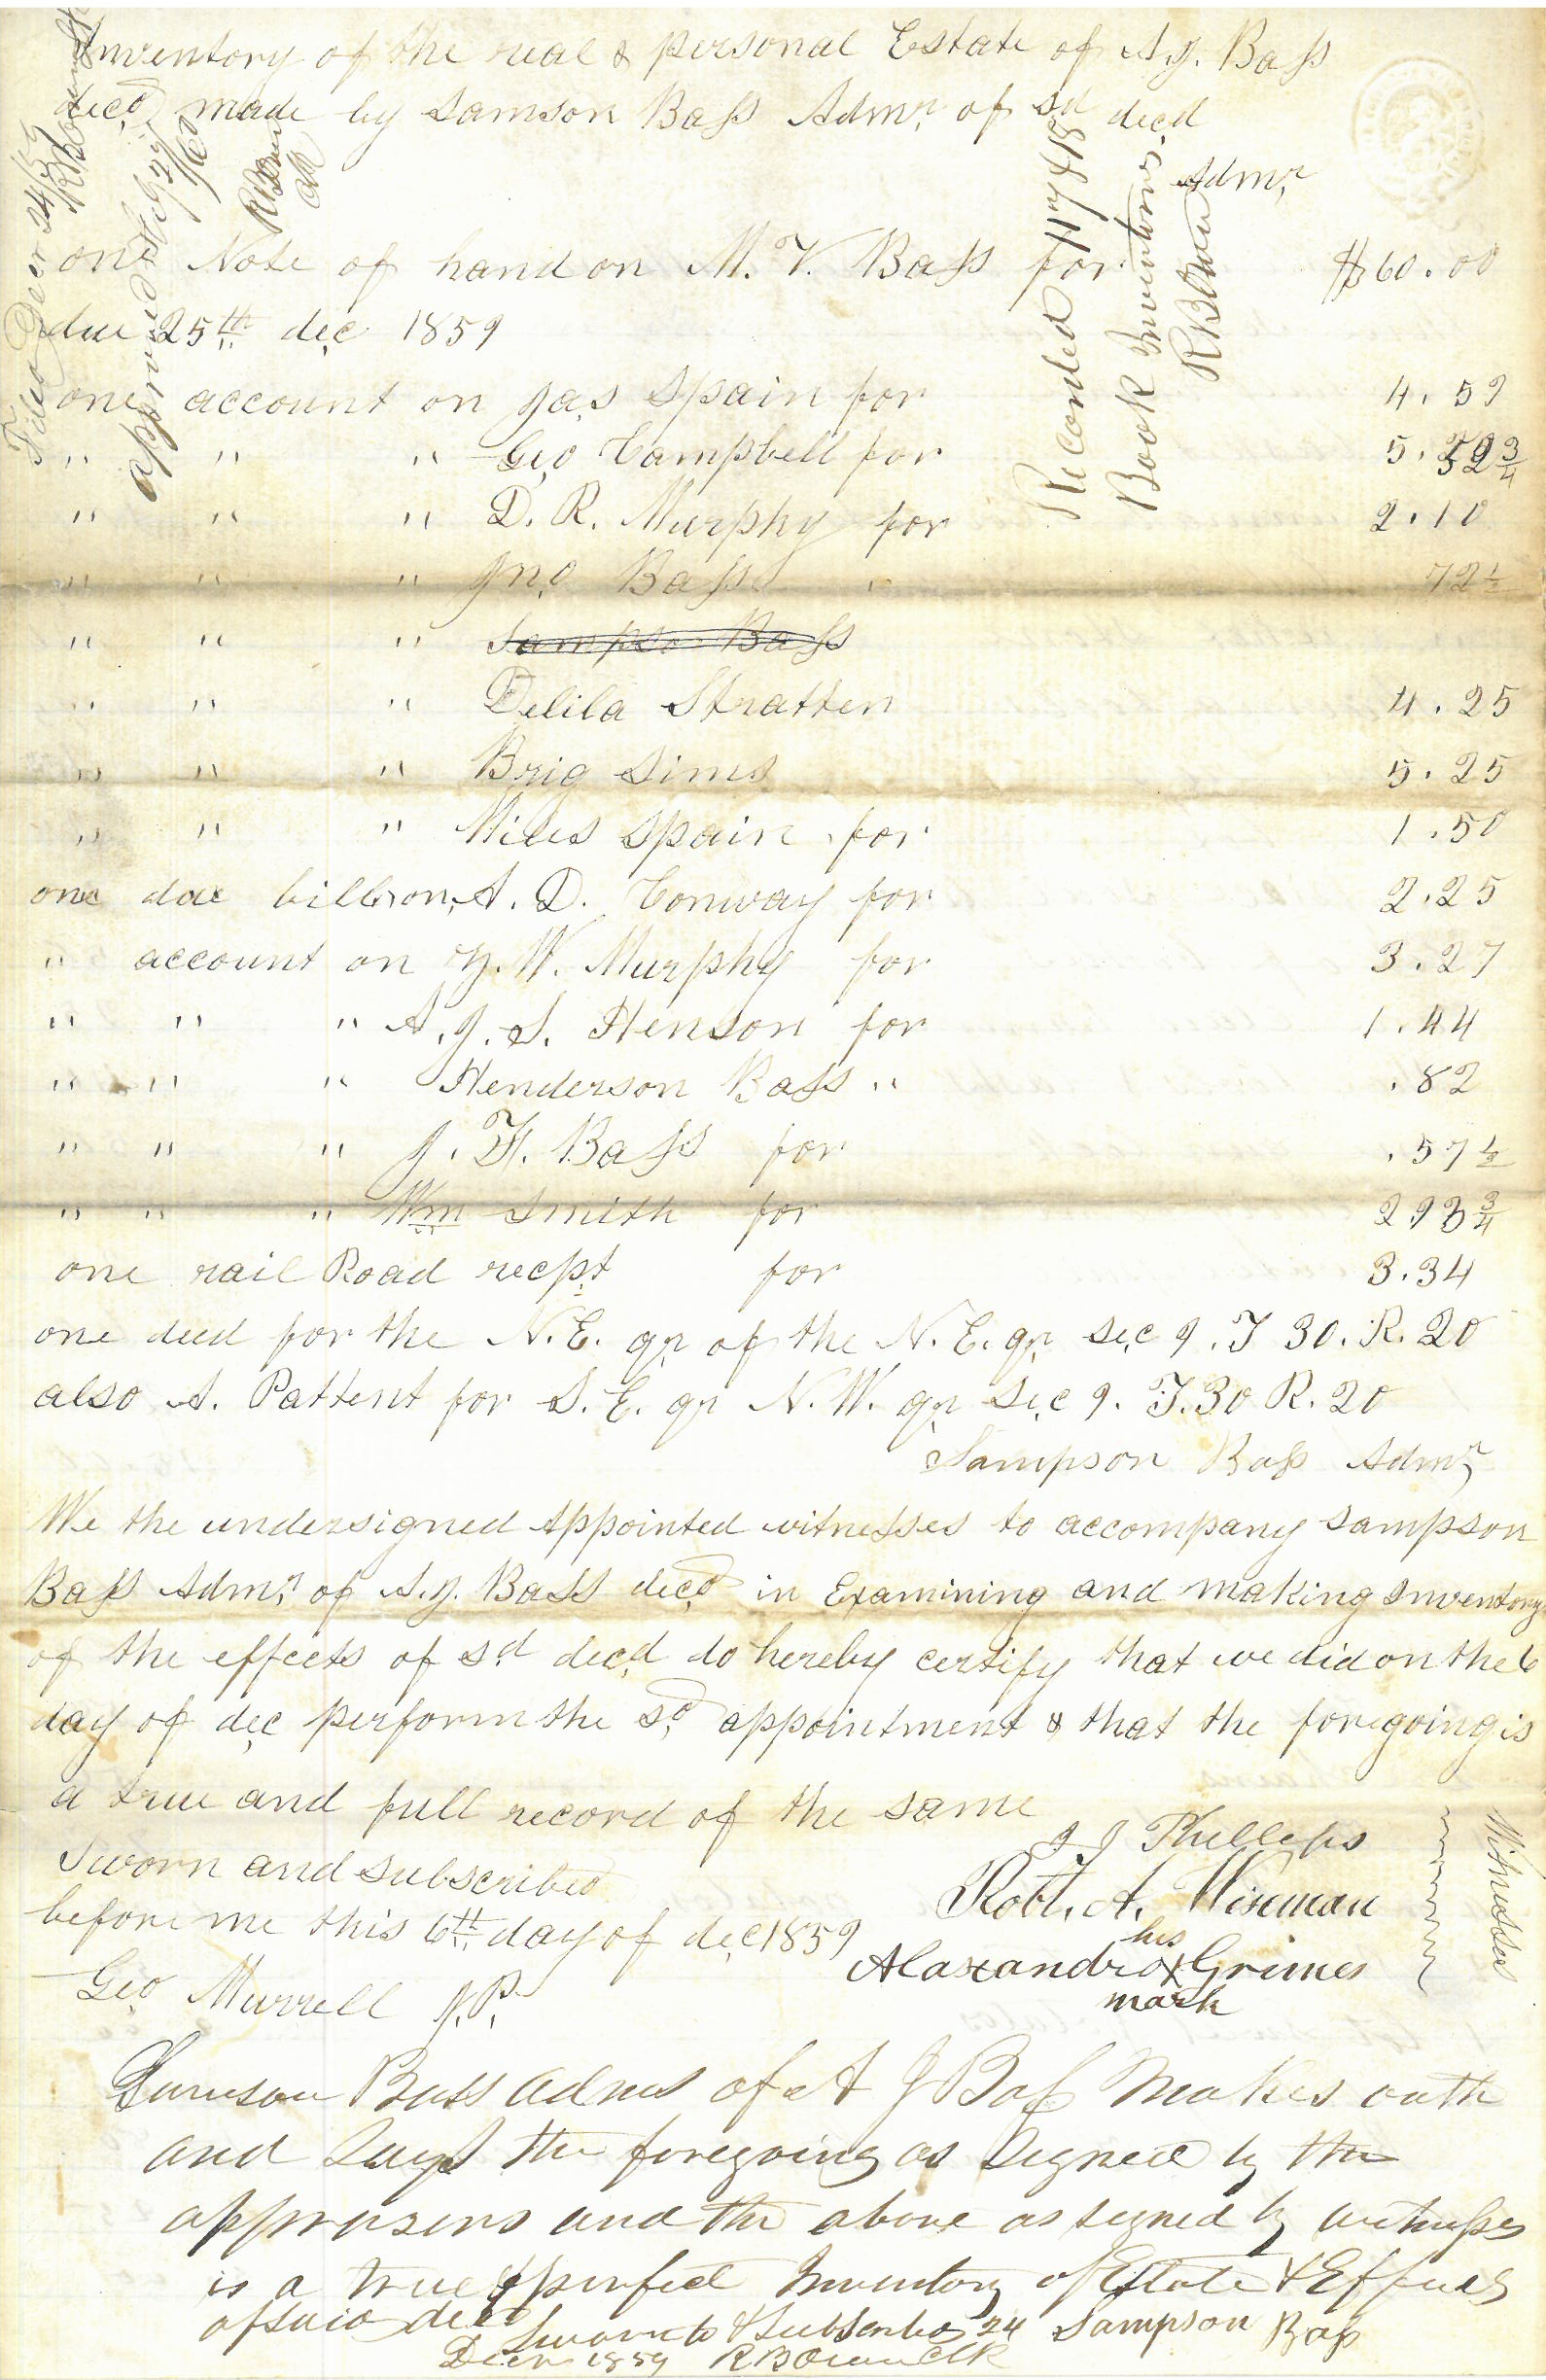 Inventory of the real & personal Estate of A. J. Bass
decd made by Samson Bass Admr of sd decd
Admr
one Note of hand on M. V. Bass for $60.00
due 25th dec 1859
one account on Jas Spain for 4.59
" " " Geo Campbell for 5.
" " " D. R. Murphy for 2.10
" " " Jno Bass " 72 1/2
" " " Sampso Bass
" " " Delila Stratten 4.25
" " " Brig Sims 5.25
" " " Miles Spain for 1.50
one due bill on A. D. Conway for 2.25
" account on W. Murphy for 3.27
" " " A. J. S. Henson for 1.44
" " " Henderson Bass " .82
" " " J. H. Bass for .57 1/2
" " " Wm Smith for 2 93 3/4
one rail Road recpt for 3.34
one deed for the N. E. qr of the N. E. qr sec 9. T 30. R. 20
also A. Pattent for S. E. qr N. W. qr Sec 9. T. 30 R. 20
Sampson Bass Admr
We the undersigned appointed witnesses to accompany Sampson
Bass Admr of A. J. Bass decd in Examining and making Inventory
of the effects of sd decd do hereby certify that we did on the 6
day of dec perform the sd appointment & that the foregoing is
a true and full record of the same
Sworn and subscribed
before me this 6th day of dec 1859
Geo Murrell J. P.
J J Phillips
Robt. A. Wiseman
his
Alaxandrox Grimes
mark
Witnesses
Samson Bass Adms of A J Bass Makes oath
and Says the foregoing as Signed by the
apprasers and the above as signed by witnesses
is a true & perfect Inventory of Estate & Effects
of said decd
Sworn to & Subscribed 24 Sampson Bass
Decr 1859 R B Owen Clk
Filed Decr 24/59
approved
R B Owen
Clk
Recorded 117 & 118
Book Inventories
R B Owen